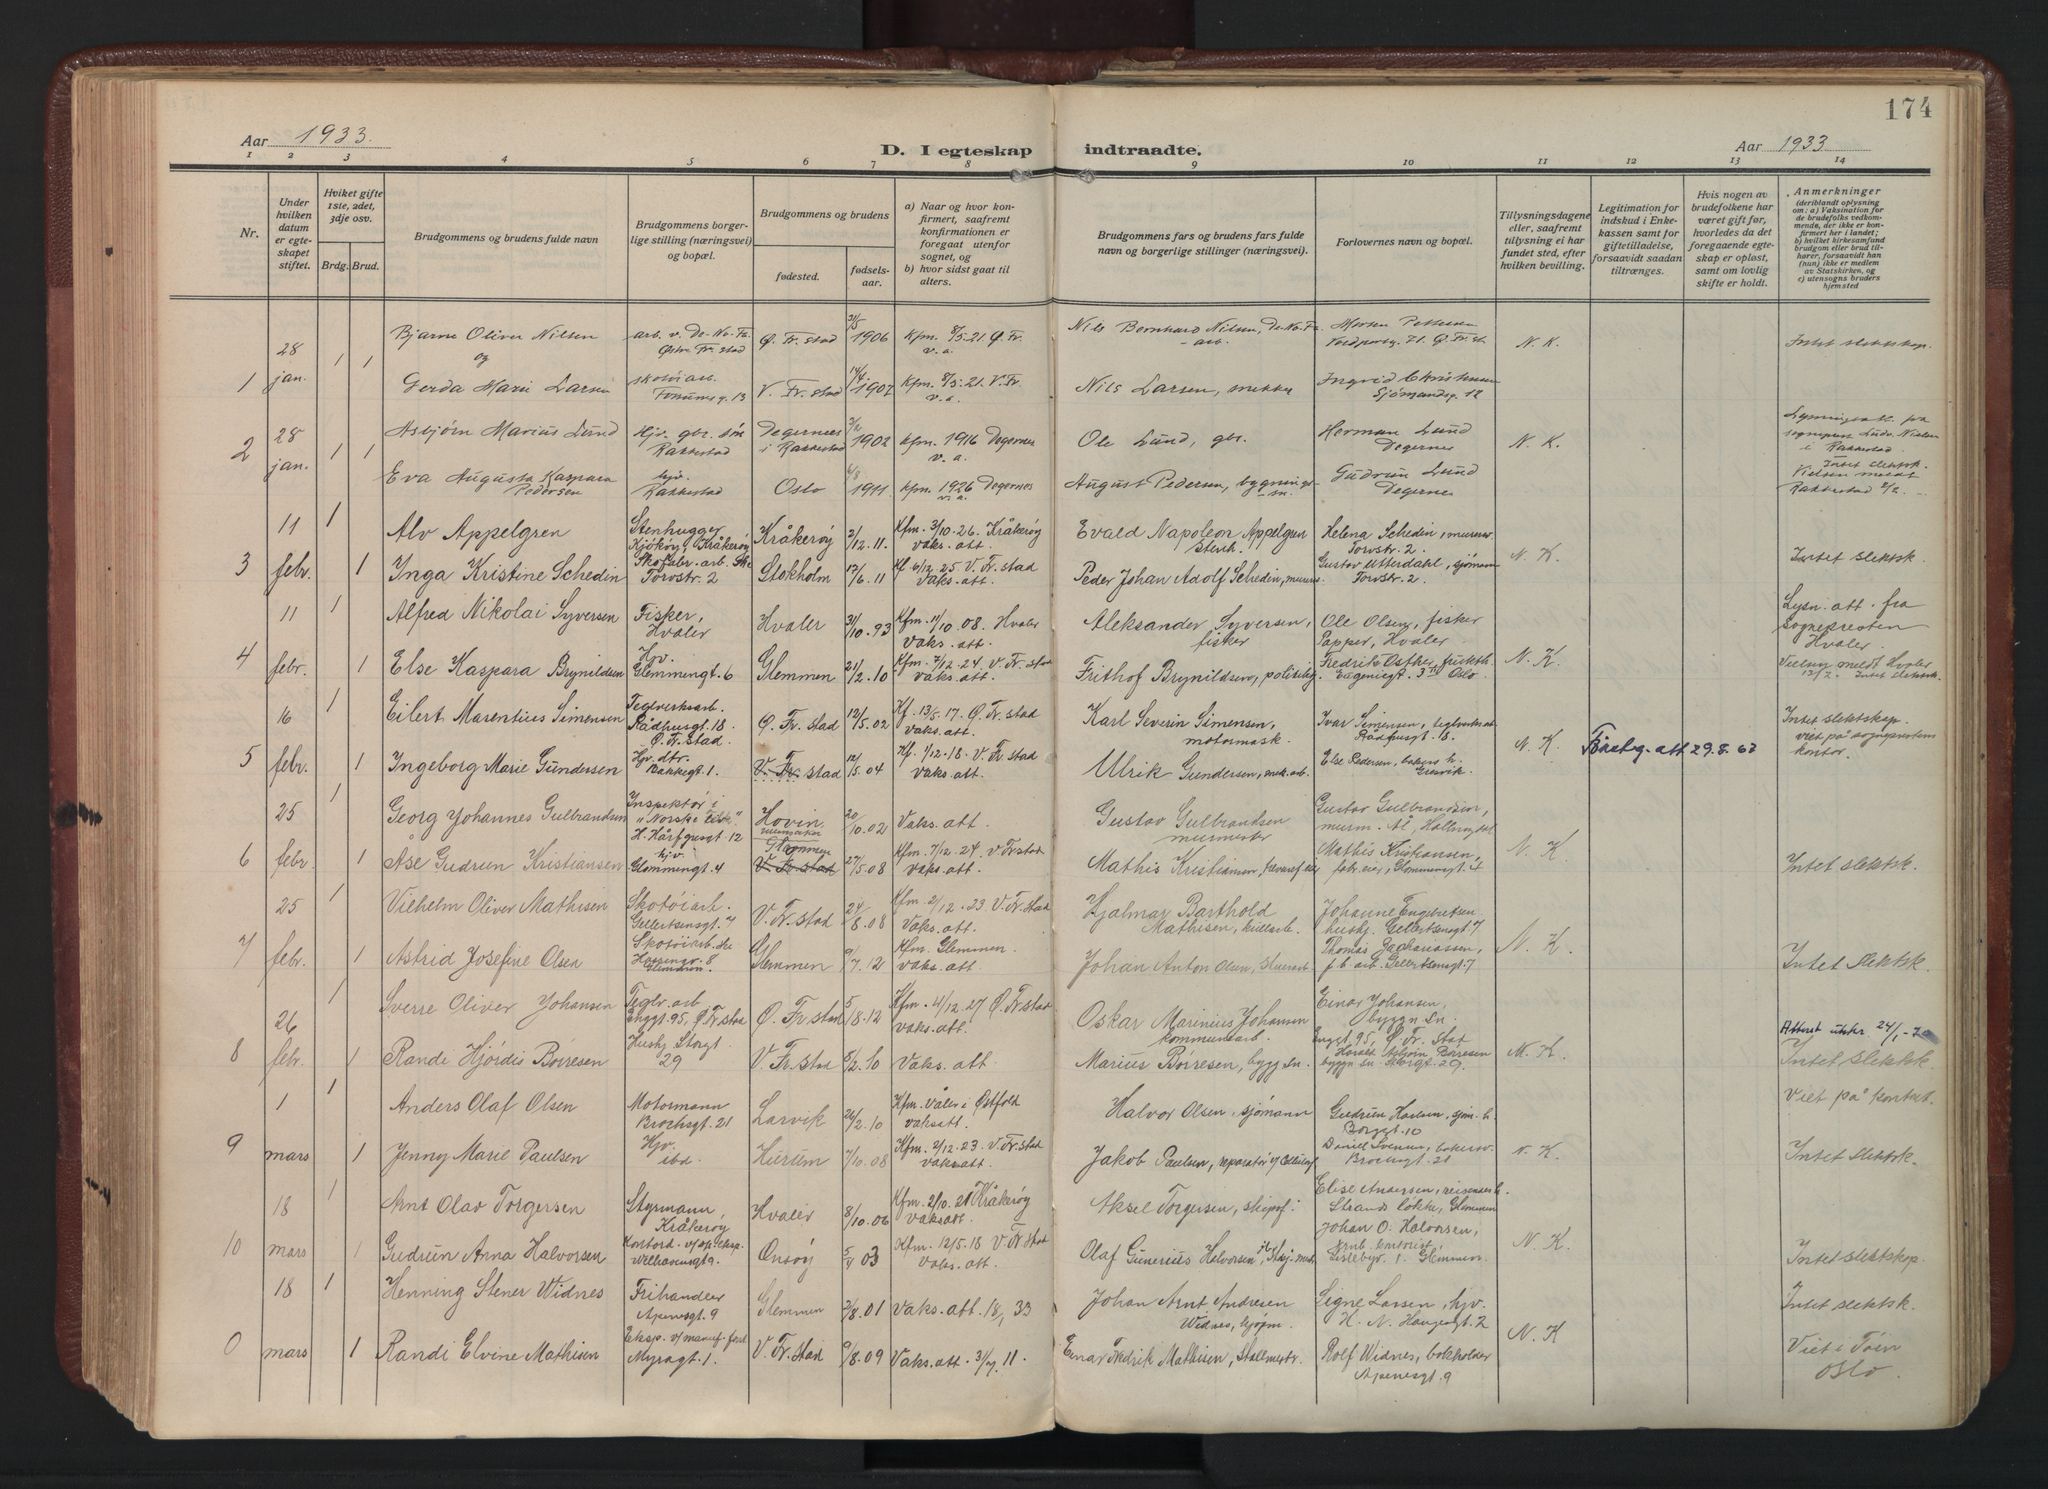 174
Aar 1933.
D. I egteskap indtraadte.
Aar 1933
1 2 3 4 5 6 7 8 9 10 11 12 13 14
Nr.
Under hvilken datum er egteskapet stiftet.
Hviket gifte 1ste, 2det, 3dje osv.
Brdg. Brud.
Brudgommens og brudens fulde navn
Brudgommens borgerlige stilling (næringsvei) og bopæl.
Brudgommens og brudens
fødested.
fødselsaar.
a) Naar og hvor konfirmert, saafremt konfirmationen er foregaat utenfor sognet, og
b) hvor sidst gaat til alters.
Brudgommens fars og brudens fars fulde navn og borgerlige stillinger (næringsvei).
Forlovernes navn og bopæl.
Tillysningsdagene eller, saafremt tillysning ei har fundet sted, efter hvilken bevilling.
Legitimation for indskud i Enkekassen samt for giftetilladelse, forsaavidt saadan tiltrænges.
Hvis nogen av brudefolkene har været gift før, hvorledes da det foregaaende egteskap er opløst, samt om lovlig skifte er holdt.
Anmerkninger (deriblandt oplysning om: a) Vaksination for de brudefolks vedkommende, der ikke er konfirmert her i landet; b) hvilket kirkesamfund brudgom eller brud tilhører, forsaavidt han (hun) ikke er medlem av Statskirken, og c) utensogns bruders hjemsted
1 28 jan. 1 1
Bjarne Oliver Nilsen arb. v. De-No-Fa Østre Fr.stad Ø. Fr.stad 1906 Kfm. 8/5.21 Ø. Fr. v.a. Nils Bernhard Nilsen, De-No-Fa arb. N. K. Intet slektskap.
og
Gerda Marie Larsen skotøiarb. V. Fr.stad 14/4 1907 Kfm. 8/5.21. V. Fr. v.a. Nils Larsen, Ingrid Christensen Sjømandsg. 12
2 28 jan. 1 1
Asbjørn Marius Lund Hjv. gbr. søn Rakkestad Degernes i Rakkestad 1902 kfm. 1916 Degernes v.a. Ole Lund, gbr. Herman Lund Degernes N. K.
Eva Augusta Kaspara Pedersen hjv. Rakkestad Oslo 1911 kfm. 1926 Degernes v.a. August Pedersen, bygningssn. Gudrun Lund Degernes
3 11 febr. 1 1
Alv Appelgren Stenhugger Kjøkøy, Kråkerøy Kråkerøy 2/12.11. Kfm. 3/10.26. Kråkerøy vaks. att. Evald Napoleon Appelgren stenh. Helena Schedin, murer Torvstr. 2. N. K.
Inga Kristine Schedin Torvstr. 2 Stokholm 17/6.11 Kf. 6/12.25 V. Fr.stad Vaks. att. Peder Johan Adolf Schedin, murer. Gustav Utterdahl, sjømann Torvstr. 2. Intet slektsk.
4 11 febr. 1 1
Alfred Nikolai Syversen Fisker, Hvaler Hvaler 31/10.93 Kfm. 11/10 08. Hvaler Vaks. att. Aleksander Syversen, fisker Ole Olsen, fisker Papper, Hvaler N. K. Lysn. att. fra sognepresten Hvaler.
Else Kaspara Brynildsen Hjv. Glemmengt. 6 Glemmen 21/2.10 Kfm. 7/12.24. V. Fr.stad vaks. att. Frithof Brynildsen, politibtj. Intet slektsk.
5 16 febr. 1 1
Eilert Marentius Simensen Teglverksarb. Rådhusgt. 18. Ø. Fr.stad. Ø. Fr.stad 12/5.02 Kf. 13/5.17. Ø. Fr.stad Vaks. att. Karl Severin Simensen, motormask. Ivar Simensen, teglverksarb. Rådhusgt. 18. N. K. att 29.8.62 Intet slektskap. viet på sogneprestens kontor.
Ingeborg Marie Gundersen Hjv. dtr. Bakkegt. 1. V. Fr.stad 12/5.04 Kf. 1/12.18. V. Fr.stad Vaks. att. Ulrik Gundersen, mek. arb. Else Pedersen,
6 25 febr. 1 1
Georg Johannes Gulbrandsen Inspektør i "Norske Liv" H. Hårfagresgt. 12 Hovin 20/10.02 Vaks. att. Gustav Gulbrandsen murmester Gustav Gulbrandsen, murm. Ål, Hallingdal N. K.
Åse Gudrun Kristiansen hjv. Glommengt. 4 Glemmen V. Fr.stad 27/5.08 Kfm. 7/12.24. V. Fr.stad vaks. att. Mathis Kristiansen, Mathis Kristiansen, fabr. eier, Glommengt. 4 Intet slektsk.
7 25 febr. 1 1
Vilhelm Oliver Mathisen Skotøiarb. Gellertsensgt. 7 V. Fr.stad 24/8.08 Kfm. 2/12.23. V. Fr.stad Vaks. att. Hjalmar Barthold Mathisen, Johanne Engebretsen husbj. Gellertsensgt. 7 N. K.
Astrid Josefine Olsen Skotøiarb.ske Glemmen 9/7.12 Kfm. Glemmen. vaks. att. Johan Anton Olsen, Thomas Zachariassen, f.b. arb. Gellertsensgt. 7 Intet slektsk.
8 26 febr. 1 1
Sverre Oliver Johansen Teglv. arb Enggt. 95, Ø. Fr.stad Ø. Fr.stad 5/8.12 Kfm. 4/12.27 Ø. Fr.stad vaks. att. Oskar Marinius Johansen kommunearb. Einar Johansen, byggn. sn. Enggt. 95, Ø. Fr. Stad N. K. Attest utskr. 24/1-7
Randi Hjördis Börresen Husbj Storgt. 29 V. Fr.stad 5/2.10 Vaks. att. Marius Börresen, bygg sn. Asbjørn Börresen byggn sn. Storgt. 29. Intet slektsk.
9 1 mars 1 1
Anders Olaf Olsen Motormann Brochsgt. 21 Larvik 26/2.10 Kfm. Våler i Østfold vaksatt. Halvor Olsen, sjømann Gudrun Borggt. 10 N. K. Viet på kontoret.
Jenny Marie Paulsen Hjv. ibd. Hurum 7/10.08 Kfm. 2/12.23. V. Fr.stad Vaks att. Jakob Paulsen, reparatør v/ Cellulosef. Brochsgt. 21 Intet slektsk.
10 18 mars 1 1
Arnt Olav Torgersen Styrmann, Kråkerøy Hvaler 8/10.06 Kfm. 2/10.21 Kråkerøy Vaksatt. Aksel Torgersen, skipsf. Elise Andersen, Glemmen N. K.
Gudrun Anna Halvorsen Wilhasensgt 9. Onsøy 5/4 03 Kfm. 12/5.18 V. Fr.stad vaks. att. Olaf Gunerius Halvorsen, Johan O. Halvorsen, Lislebyv. 1. Glemmen. Intet slektskap.
0 18 mars 1 1
Henning Stener Widnes Frihandler Apenesgt. 9 Glemmen 2/8.01 Vaks. att. 18/, 33 Johan Arnt Andresen Widnes, sjøm. Signe Larsen, hjv. H. N. Haugesgt. 2 N. K Intet slektsk.
Randi Elvine Mathisen Eksp. v/ manuf. forr. Myragt. 1. V. Fr.stad 9/8.09 Vaks. att. 3/7 11. Einar Fredrik Mathisen, Stallmestr. Rolf Widnes, bokholder Apenesgt. 9 Viet i Tøien Oslo.